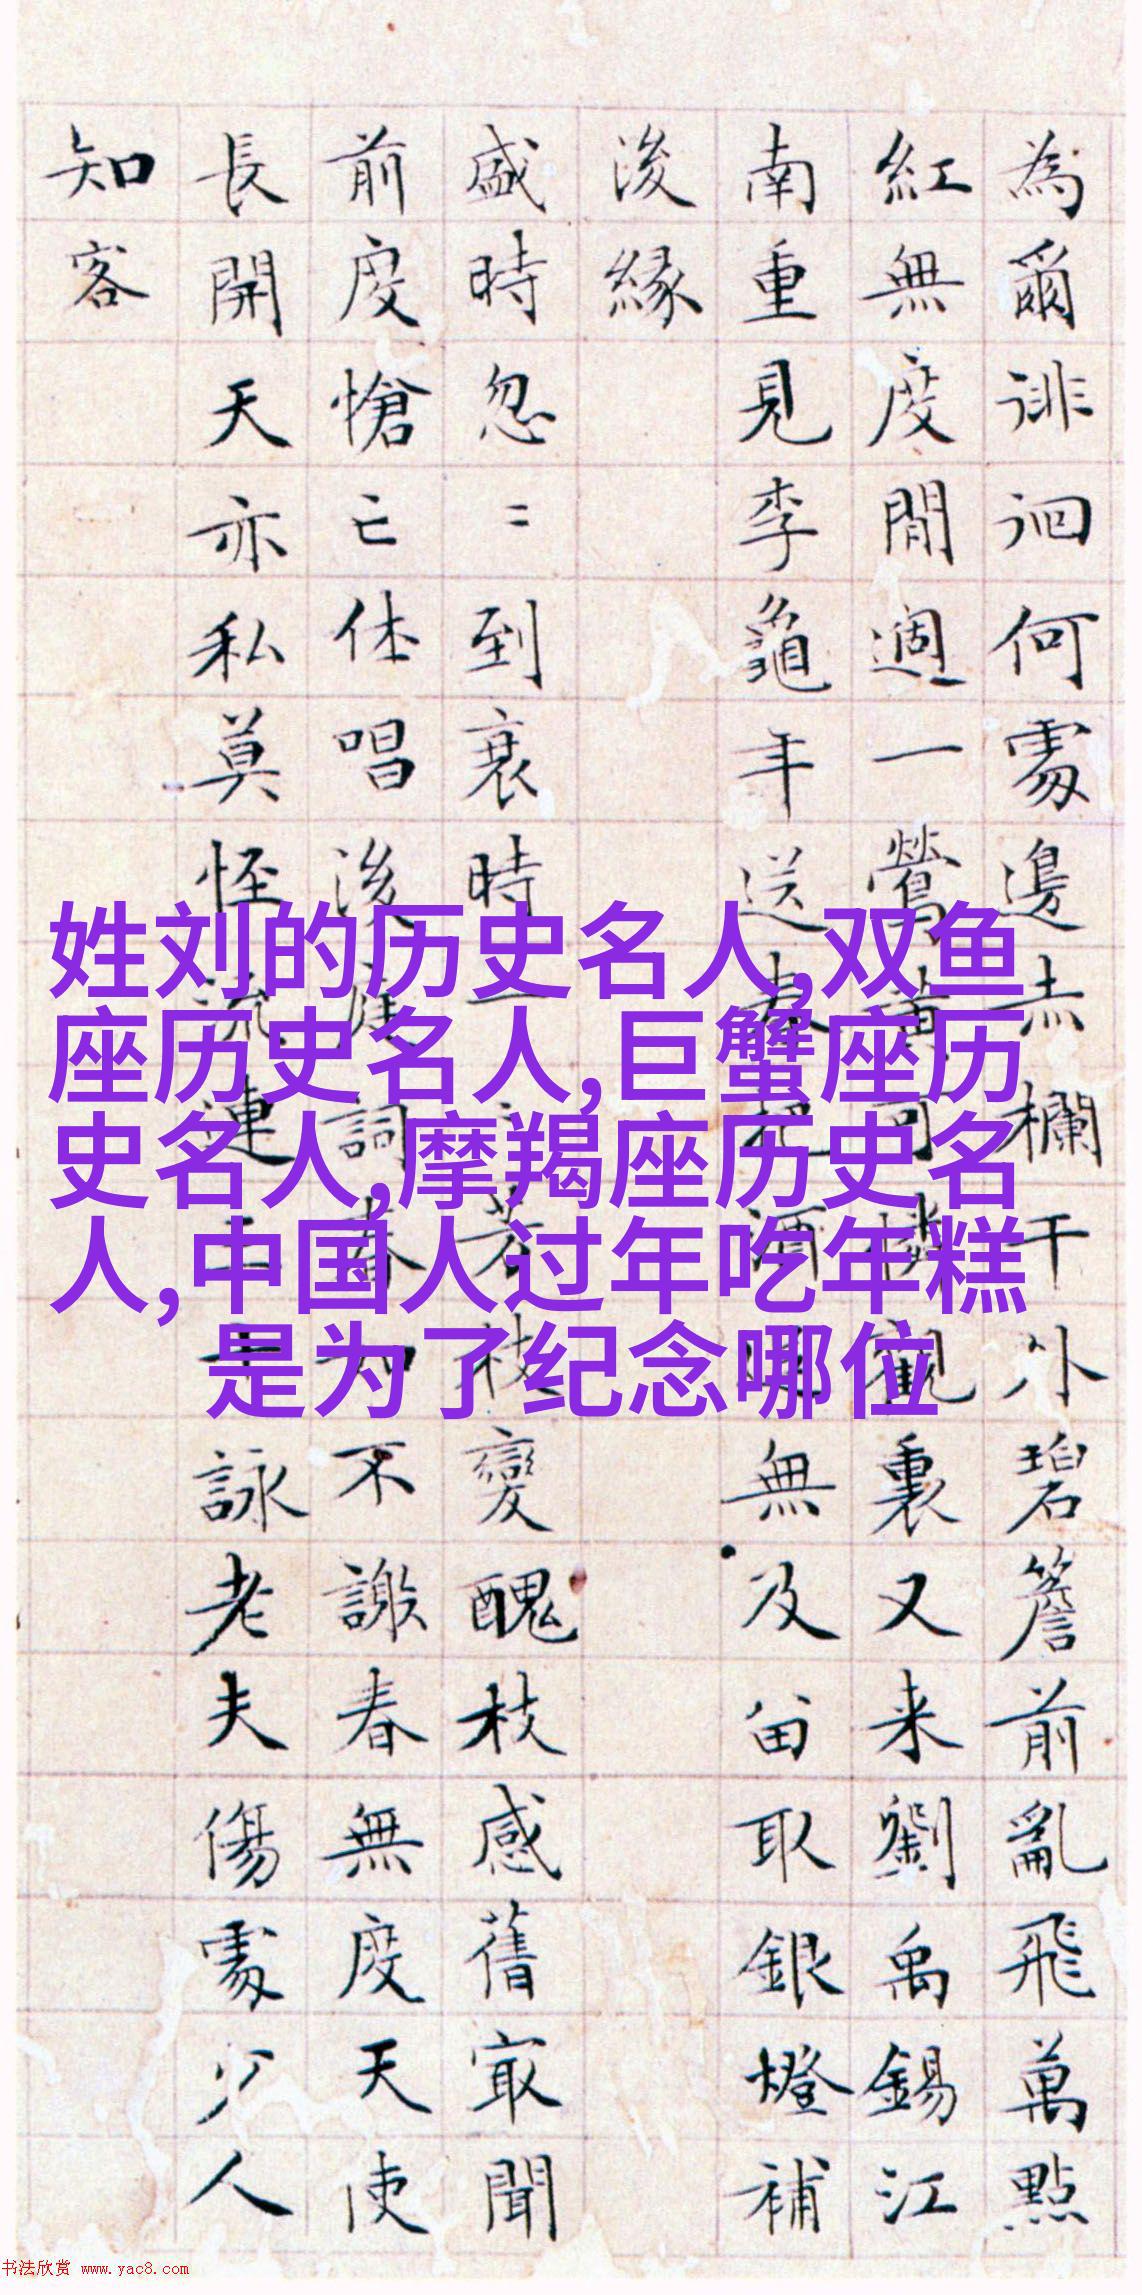 為爾徘徊何處邊赤欄干外碧簷前亂飛萬點
紅無度閒一鶯黃可觀裏又来劉禹錫江
南重見李龜年送春把酒無及留取銀燈補
後緣
盛時忽〻到衰時一芳枝變醜枝感舊最聞
前度愴亡休唱後庭詞春知不謝春無度天使
長開天亦私莫怪流連詠老夫傷處少人
知客
姓刘的历史名人,双鱼
座历史名人,巨蟹座历
史名人,摩羯座历史名
人,中国人过年吃年糕
是为了纪念哪位
书法欣赏 www.yac8.com